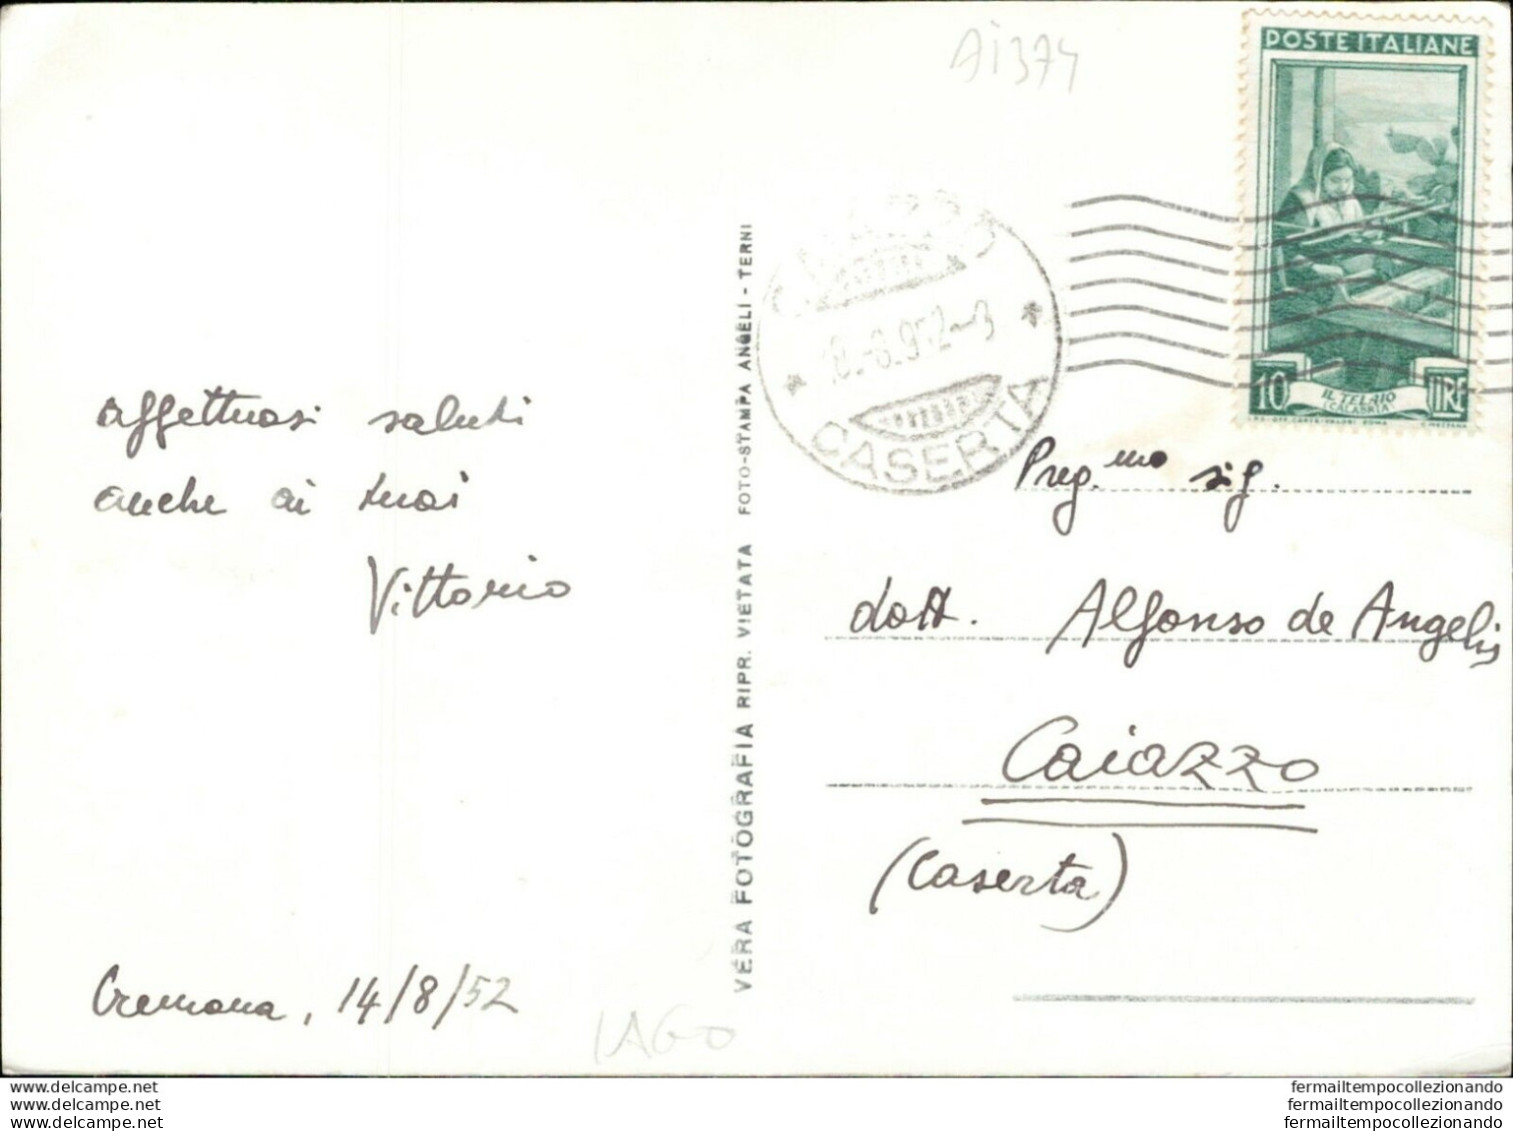 Ai374
POSTE ITALIANE
10 LIRE
IL TELAIO
(CALABRIA)
CASERTA
affettuosi saluti
anche ai tuoi
Vittorio
Cremona, 14/8/52
VERA FOTOGRAFIA RIPR. VIETATA FOTO-STAMPA ANGELI - TERNI
Preg.mo sig.
dott. Alfonso de Angelis
Caiazzo
(Caserta)
delcampe.net
delcampe.net
delcampe.net
fermailtempocollezionando
fermailtempocollezionando
fermailtempocollezionando